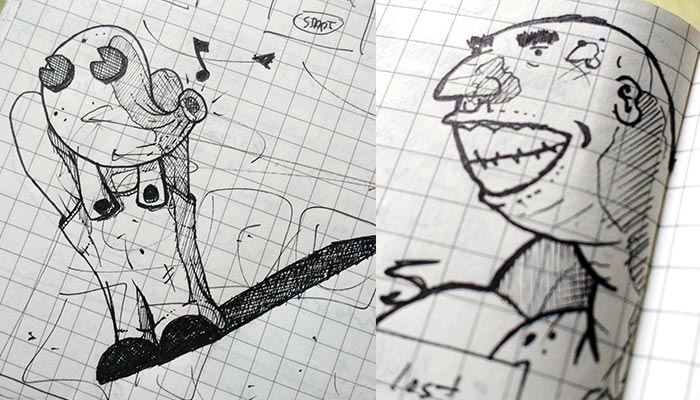 START
lost